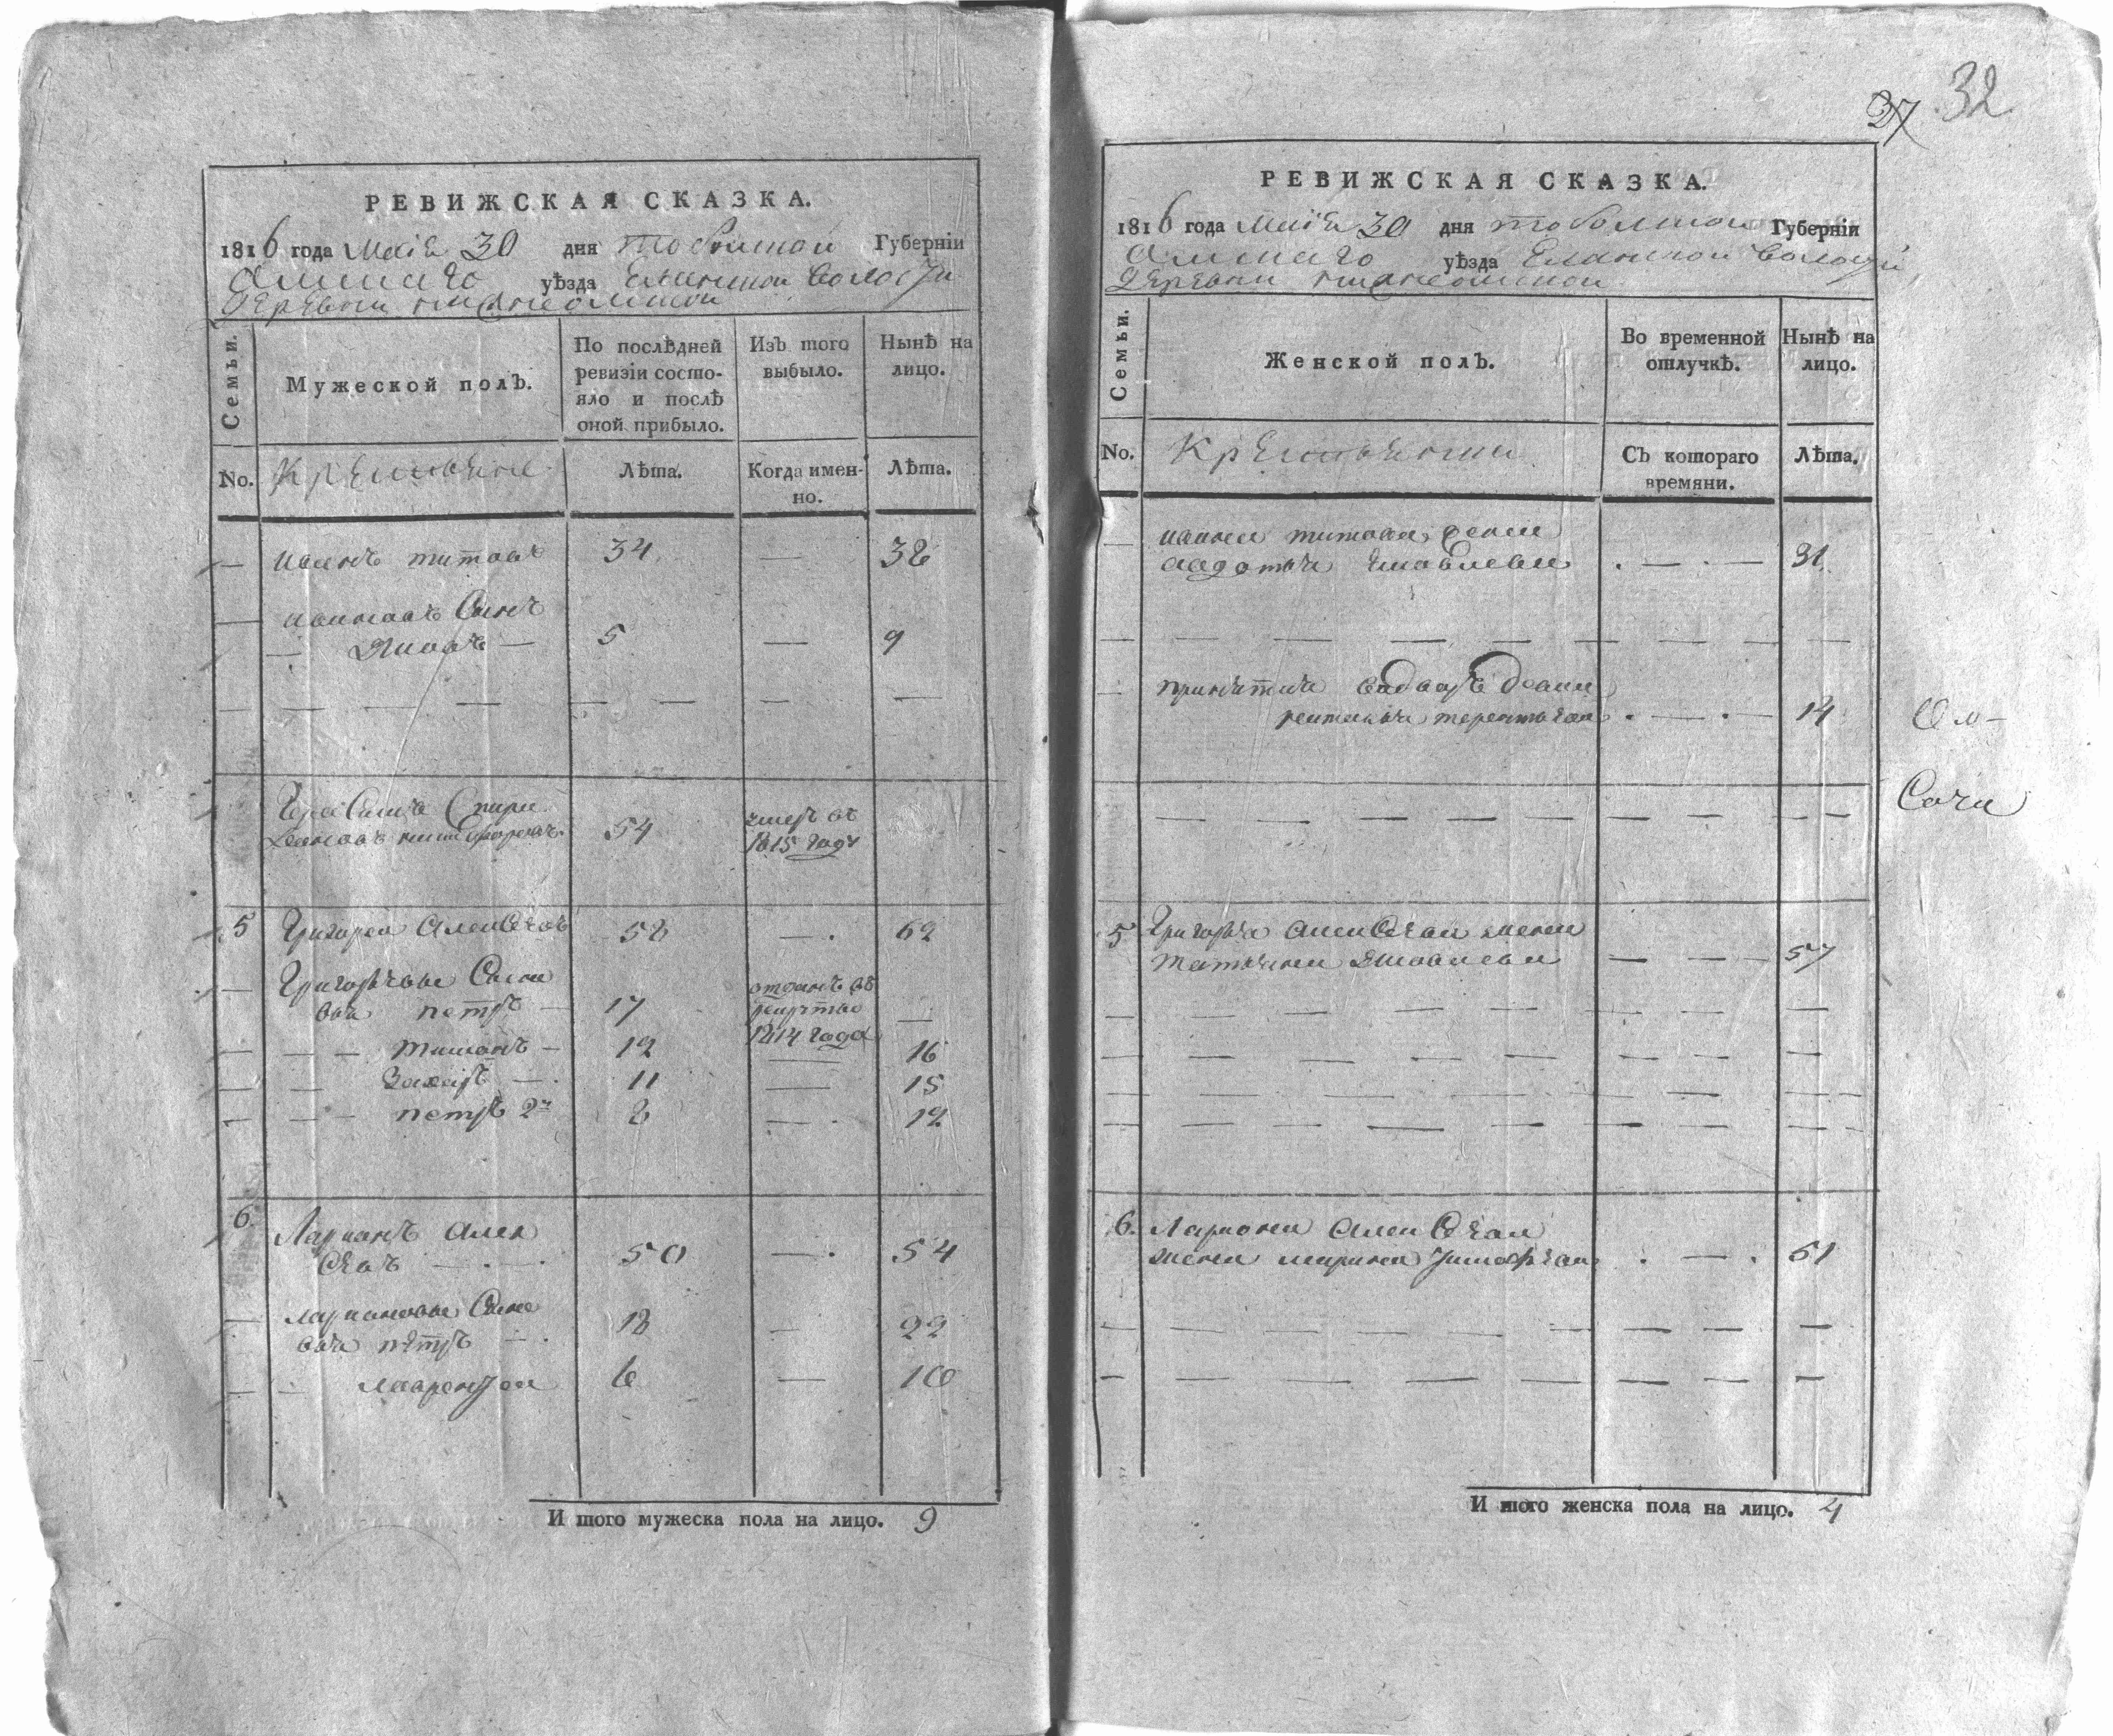 РЕВИЖСКАЯ СКАЗКА.
1816 года Маiя 30 дня тоболской Губернiи
Омскаго уѣзда Еланской волости
деревни
Семьи.
Мужеской полъ.
По послѣдней ревизiи состояло и послѣ оной прибыло.
Изъ того выбыло.
Нынѣ на лицо.
No.
Крестьяне
Лѣта.
Когда именно.
Лѣта.
иванъ титовъ 34 — 38
ивановъ Сынъ
Яковъ — 5 — 9
Герасимъ Спири
доновъ 54 умеръ въ
1815 году
5 Григорей Алексѣевъ 58 — 62
Григорьевы Сыно
вья петръ — 17 отданъ въ
рекруты
1814 года
12 — 16
Захаръ — 11 — 15
петръ 2й 8 — 12
6. Ларионъ Алек
сѣевъ 50 — 54
Ларионовы Сыно
вья петръ 18 — 22
лаврентей 6 — 10
И того мужеска пола на лицо. 9
27 32
РЕВИЖСКАЯ СКАЗКА.
1816 года Маiя 30 дня тоболской Губернiи
Омскаго уѣзда Еланской волости
деревни
Семьи.
Женской полъ.
Во временной отлучкѣ.
Нынѣ на лицо.
No.
Крестьянки
Съ котораго времяни.
Лѣта.
ивана титова жена
авдотья яковлева — 31
14
5 Григорья Алексѣева жена
татьяна яковлева — 57
6. Лариона Алексѣева
жена марина — 51
И того женска пола на лицо. 4